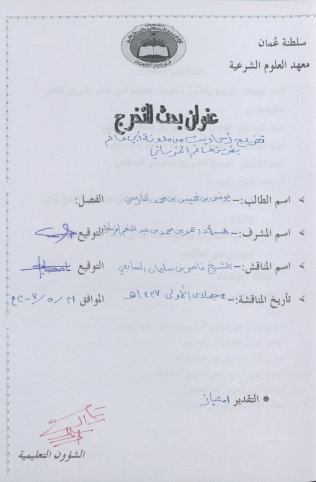 سلطنة عُمان
معهد العلوم الشرعية
عنوان بحث التخرج
تخريج أحاديث من مدونة أبي غانم
بشر بن غانم الخرساني
اسم الطالب:- يونس بن خميس بن محمد الفارسي الفصل:
اسم المشرف:- الأستاذ: عمر بن محمد بن عبد التوقيع
اسم المناقش:- الشيخ ناصر بن سليمان السابعي التوقيع
تاريخ المناقشة:- جمادى الأولى ١٤٢٧هـ الموافق
التقدير امتياز
الشؤون التعليمية